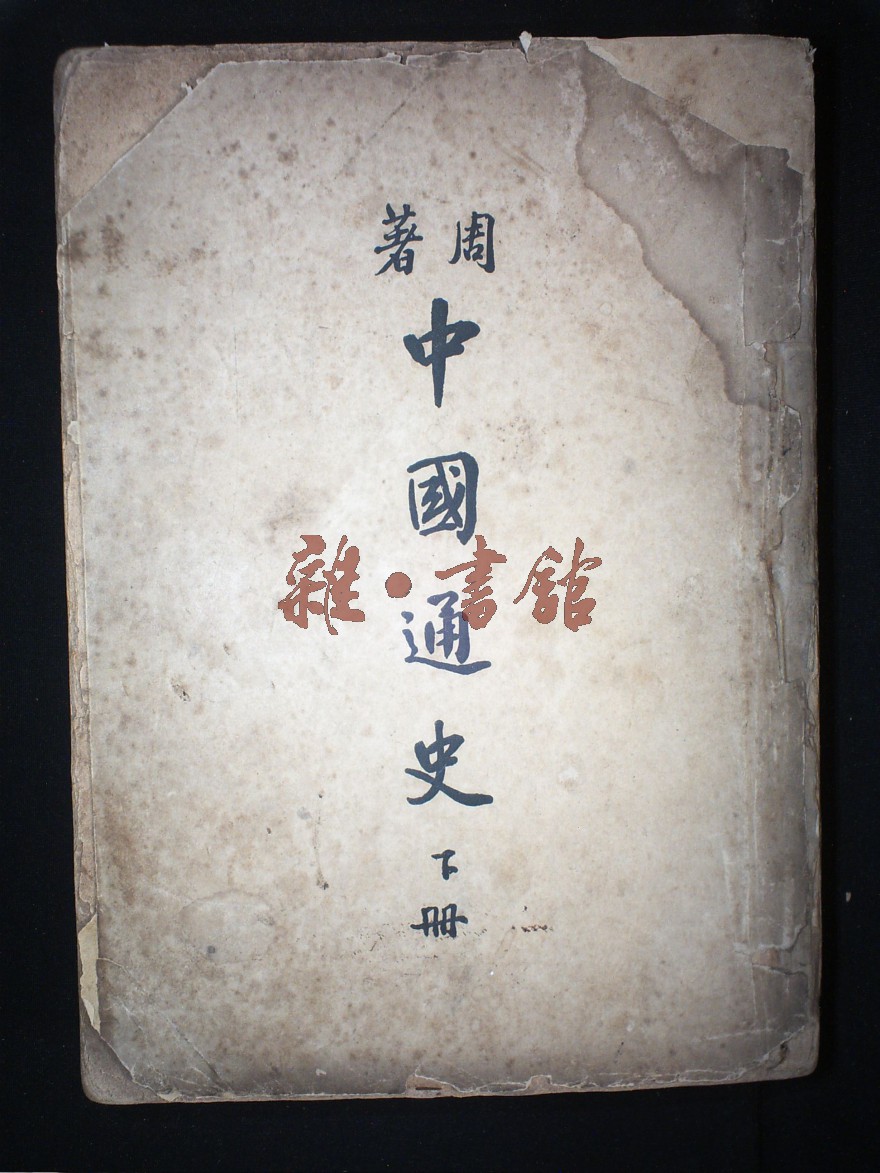 周著
中國通史
下冊
雜·書館